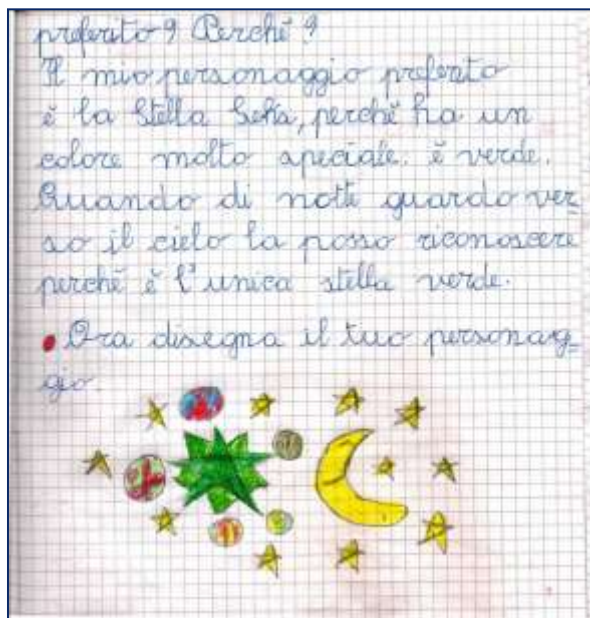 preferito? Perché?
Il mio personaggio preferito
è la Stella
perché ha un
colore molto speciale: è verde.
Quando di notte guardo ver=
so il cielo la posso riconoscere
perché è l'unica stella verde.
• Ora disegna il tuo personag=
gio.